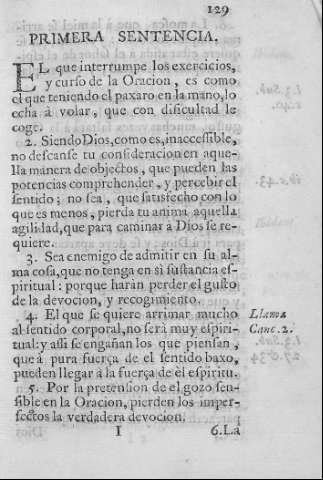 129
PRIMERA SENTENCIA.
EL que interrumpe los exercicios,
y curso de la Oracion, es como
el que teniendo el paxaro en la mano, lo
echa à volar, que con dificultad le
coge.
2. Siendo Dios, como es, inaccessible,
no descanse tu consideracion en aque-
lla manera de objectos, que pueden las
potencias comprehender, y percebir el
sentido; no sea, que satisfecho con lo
que es menos, pierda tu anima aquella
agilidad, que para caminar à Dios se re-
quiere.
3. Sea enemigo de admitir en su al-
ma cosa, que no tenga en sì sustancia es-
piritual: porque haràn perder el gusto
de la devocion, y recogimiento.
4. El que se quiere arrimar mucho
al sentido corporal, no serà muy espiri-
tual: y assi se engañan los que piensan,
que à pura fuerça de el sentido baxo,
pueden llegar à la fuerça de el espiritu.
Llama
Canc. 2.
5. Por la pretension de el gozo sen-
sible en la Oracion, pierden los imper-
fectos la verdadera devocion.
I
6. La